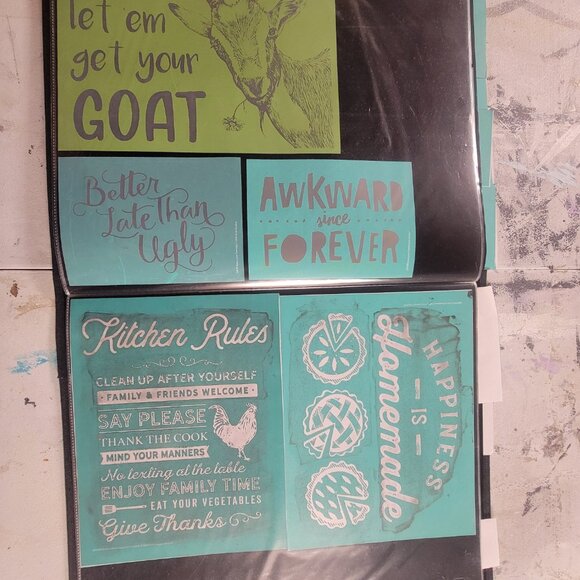 let em
get your
GOAT
Better
Late Than
Ugly
AWKWARD
since
FOREVER
Kitchen Rules
CLEAN UP AFTER YOURSELF
FAMILY & FRIENDS WELCOME
SAY PLEASE
THANK THE COOK
MIND YOUR MANNERS
No texting at the table
ENJOY FAMILY TIME
EAT YOUR VEGETABLES
Give Thanks
HAPPINESS
IS
Homemade